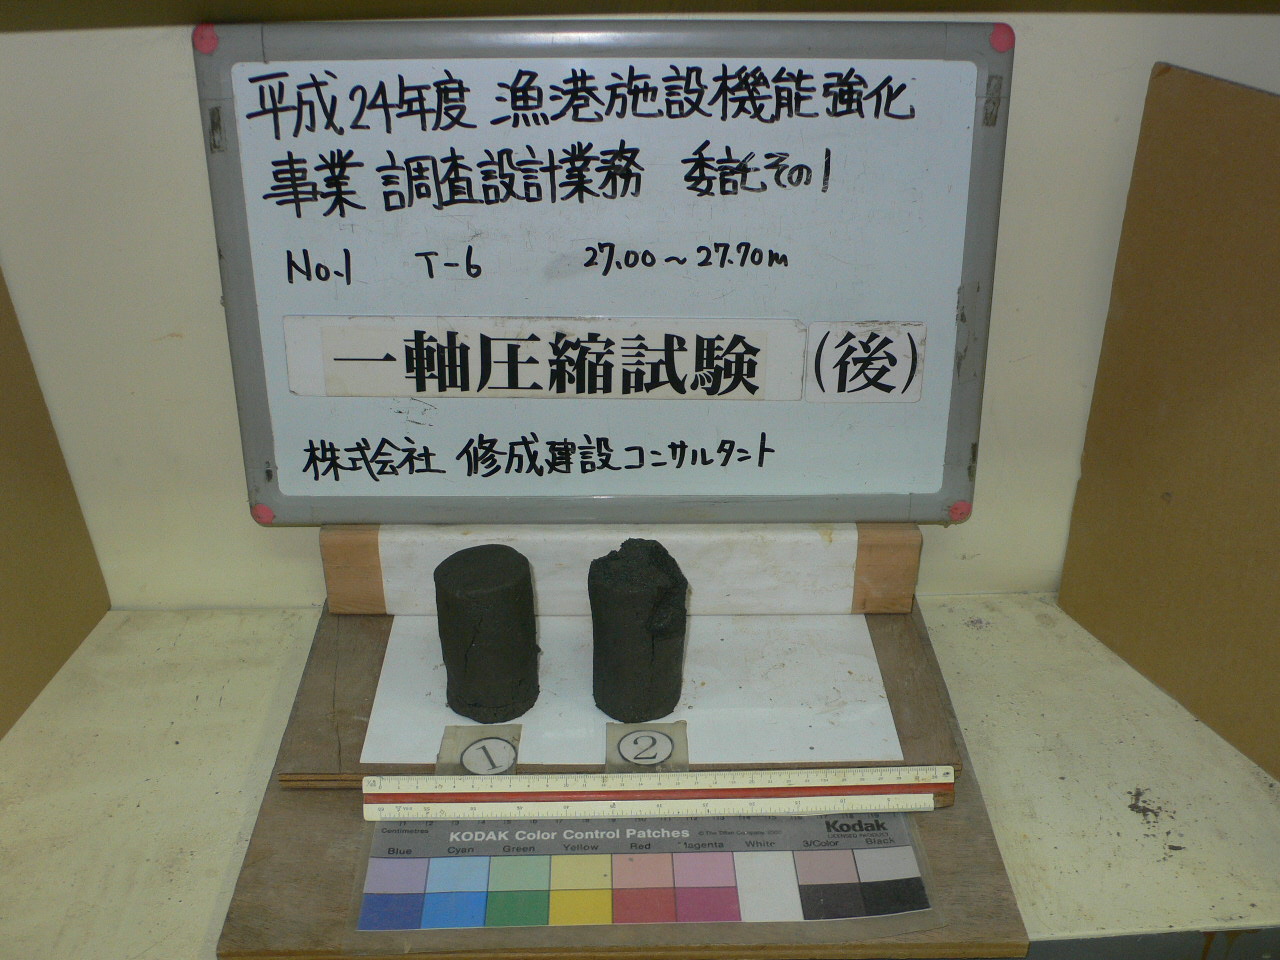 平成24年度 漁港施設機能強化
事業 調査設計業務 委託その1
No.1 T-6 27.00～27.70m
一軸圧縮試験 (後)
株式会社 修成建設コンサルタント
① ②
Centimetres
KODAK Color Control Patches
Kodak
LICENSED PRODUCT
Blue Cyan Green Yellow Red Magenta White 3/Color Black